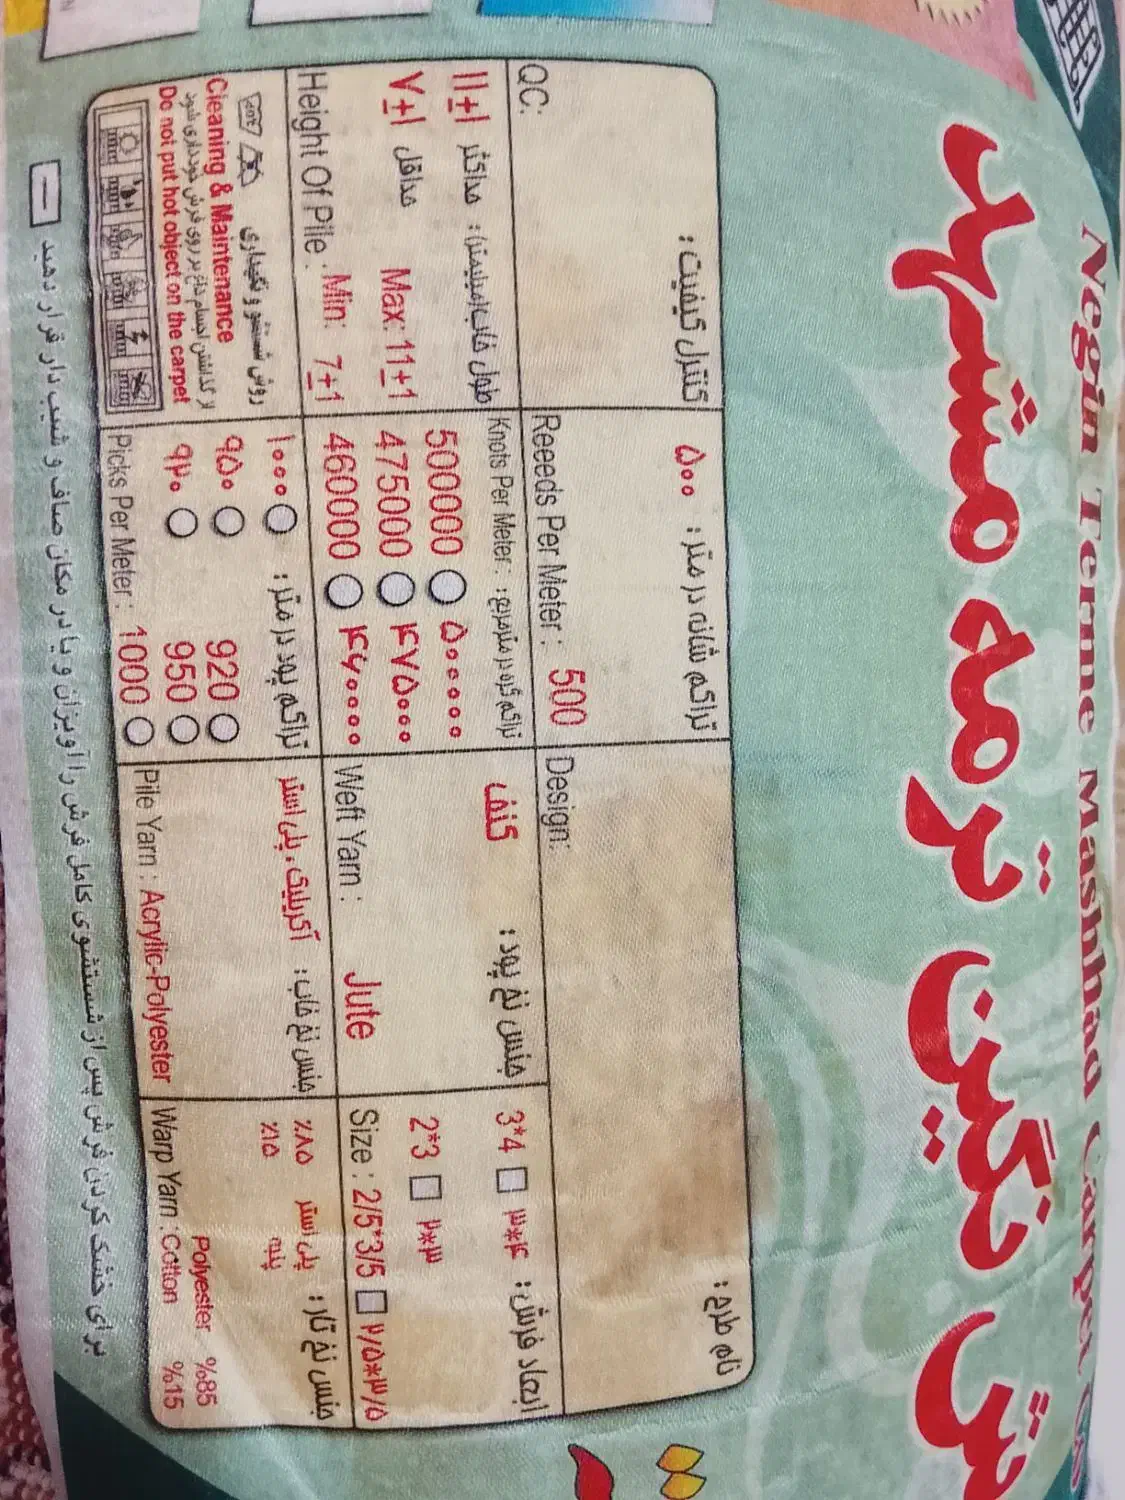 Negin Terme Mashhad Carpet Co
نگین ترمه مشهد
نام طرح:
Design:
تراکم شانه در متر: ۵۰۰
Reeeds Per Meter: 500
کنترل کیفیت:
QC:
ابعاد فرش:
3*4 ۳*۴
2*3 ۲*۳
Size: 2/5*3/5 ۲/۵*۳/۵
جنس نخ پود:
کنف
Weft Yarn: Jute
تراکم گره در مترمربع:
Knots Per Meter:
500000 ۵۰۰۰۰۰
475000 ۴۷۵۰۰۰
460000 ۴۶۰۰۰۰
طول خاب(میلیمتر): حداکثر ۱۱±۱
حداقل ۷±۱
Max: 11±1
Height Of Pile: Min: 7±1
جنس نخ تار:
پلی استر ٪۸۵
پنبه ٪۱۵
Polyester %85
Warp Yarn: Cotton %15
جنس نخ خاب: آکریلیک، پلی استر
Pile Yarn: Acrylic-Polyester
تراکم پود در متر: ۱۰۰۰
۹۵۰
۹۲۰
920
950
Picks Per Meter: 1000
روش شستشو و نگهداری
Cleaning & Maintenance
از گذاشتن اجسام داغ بر روی فرش خودداری شود
Do not put hot object on the carpet
برای خشک کردن فرش پس از شستشوی کامل فرش را آویزان و یا در مکان صاف و شیب دار قرار دهید